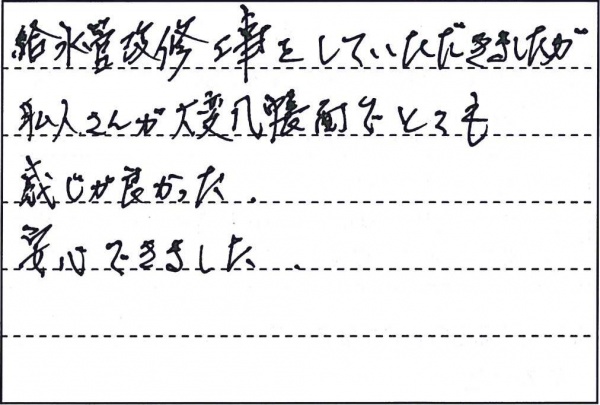 給水管改修工事をしていただきましたが
職人さんが大変几帳面でとても
感じが良かった.
安心できました.